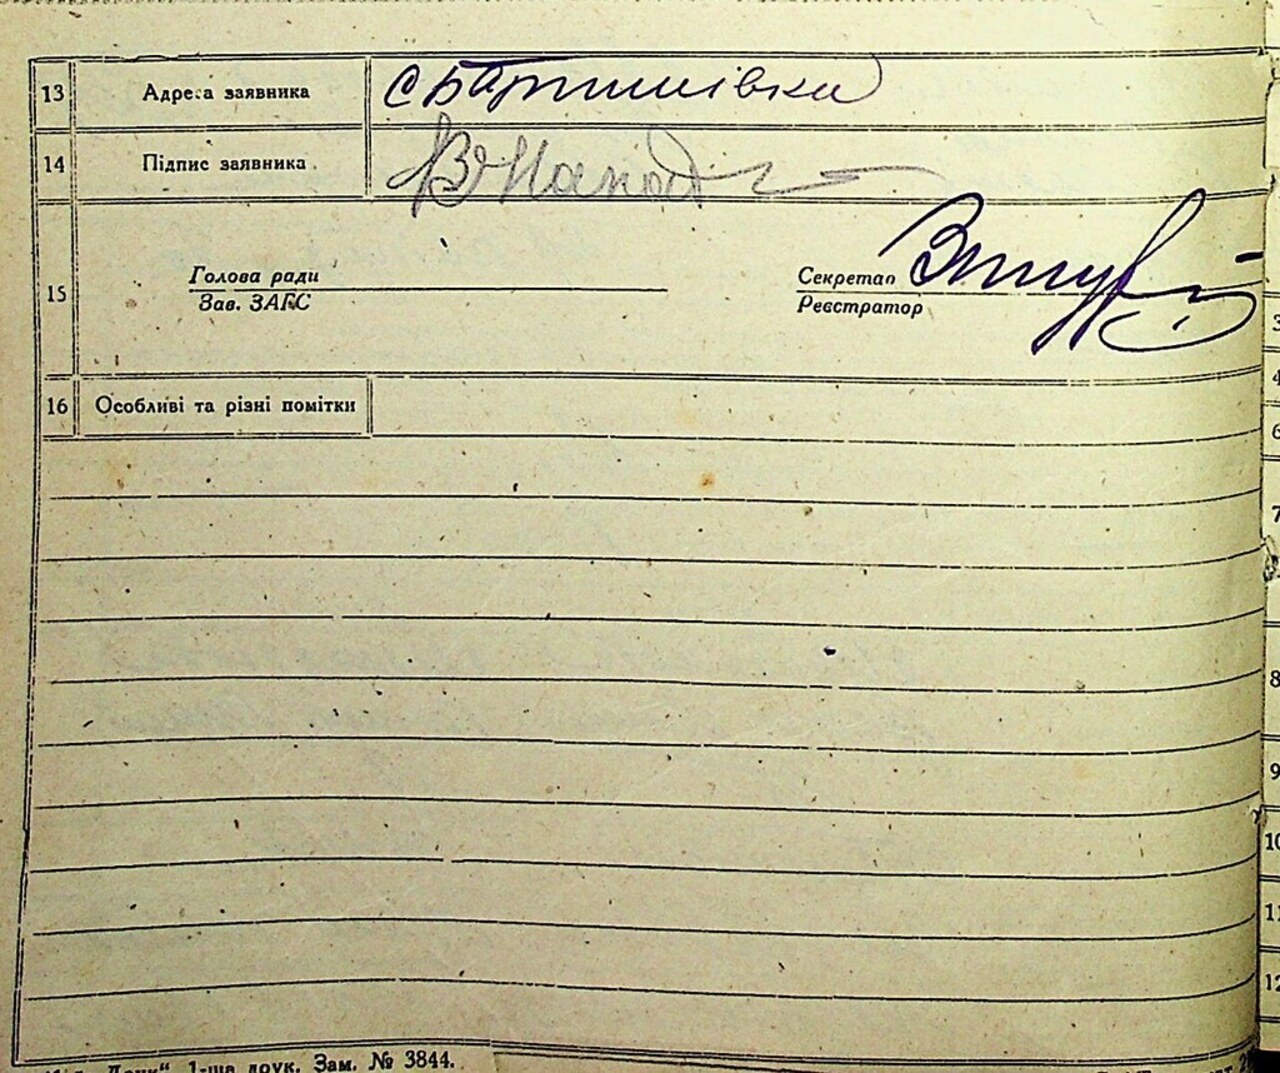 13 Адреса заявника с Баришівка
14 Підпис заявника
15 Голова ради
Зав. ЗАГС
Секретар
Реєстратор
16 Особливі та різні помітки
3
4
6
7
8
9
10
11
12
Друк“ 1-ша друк. Зам. № 3844.